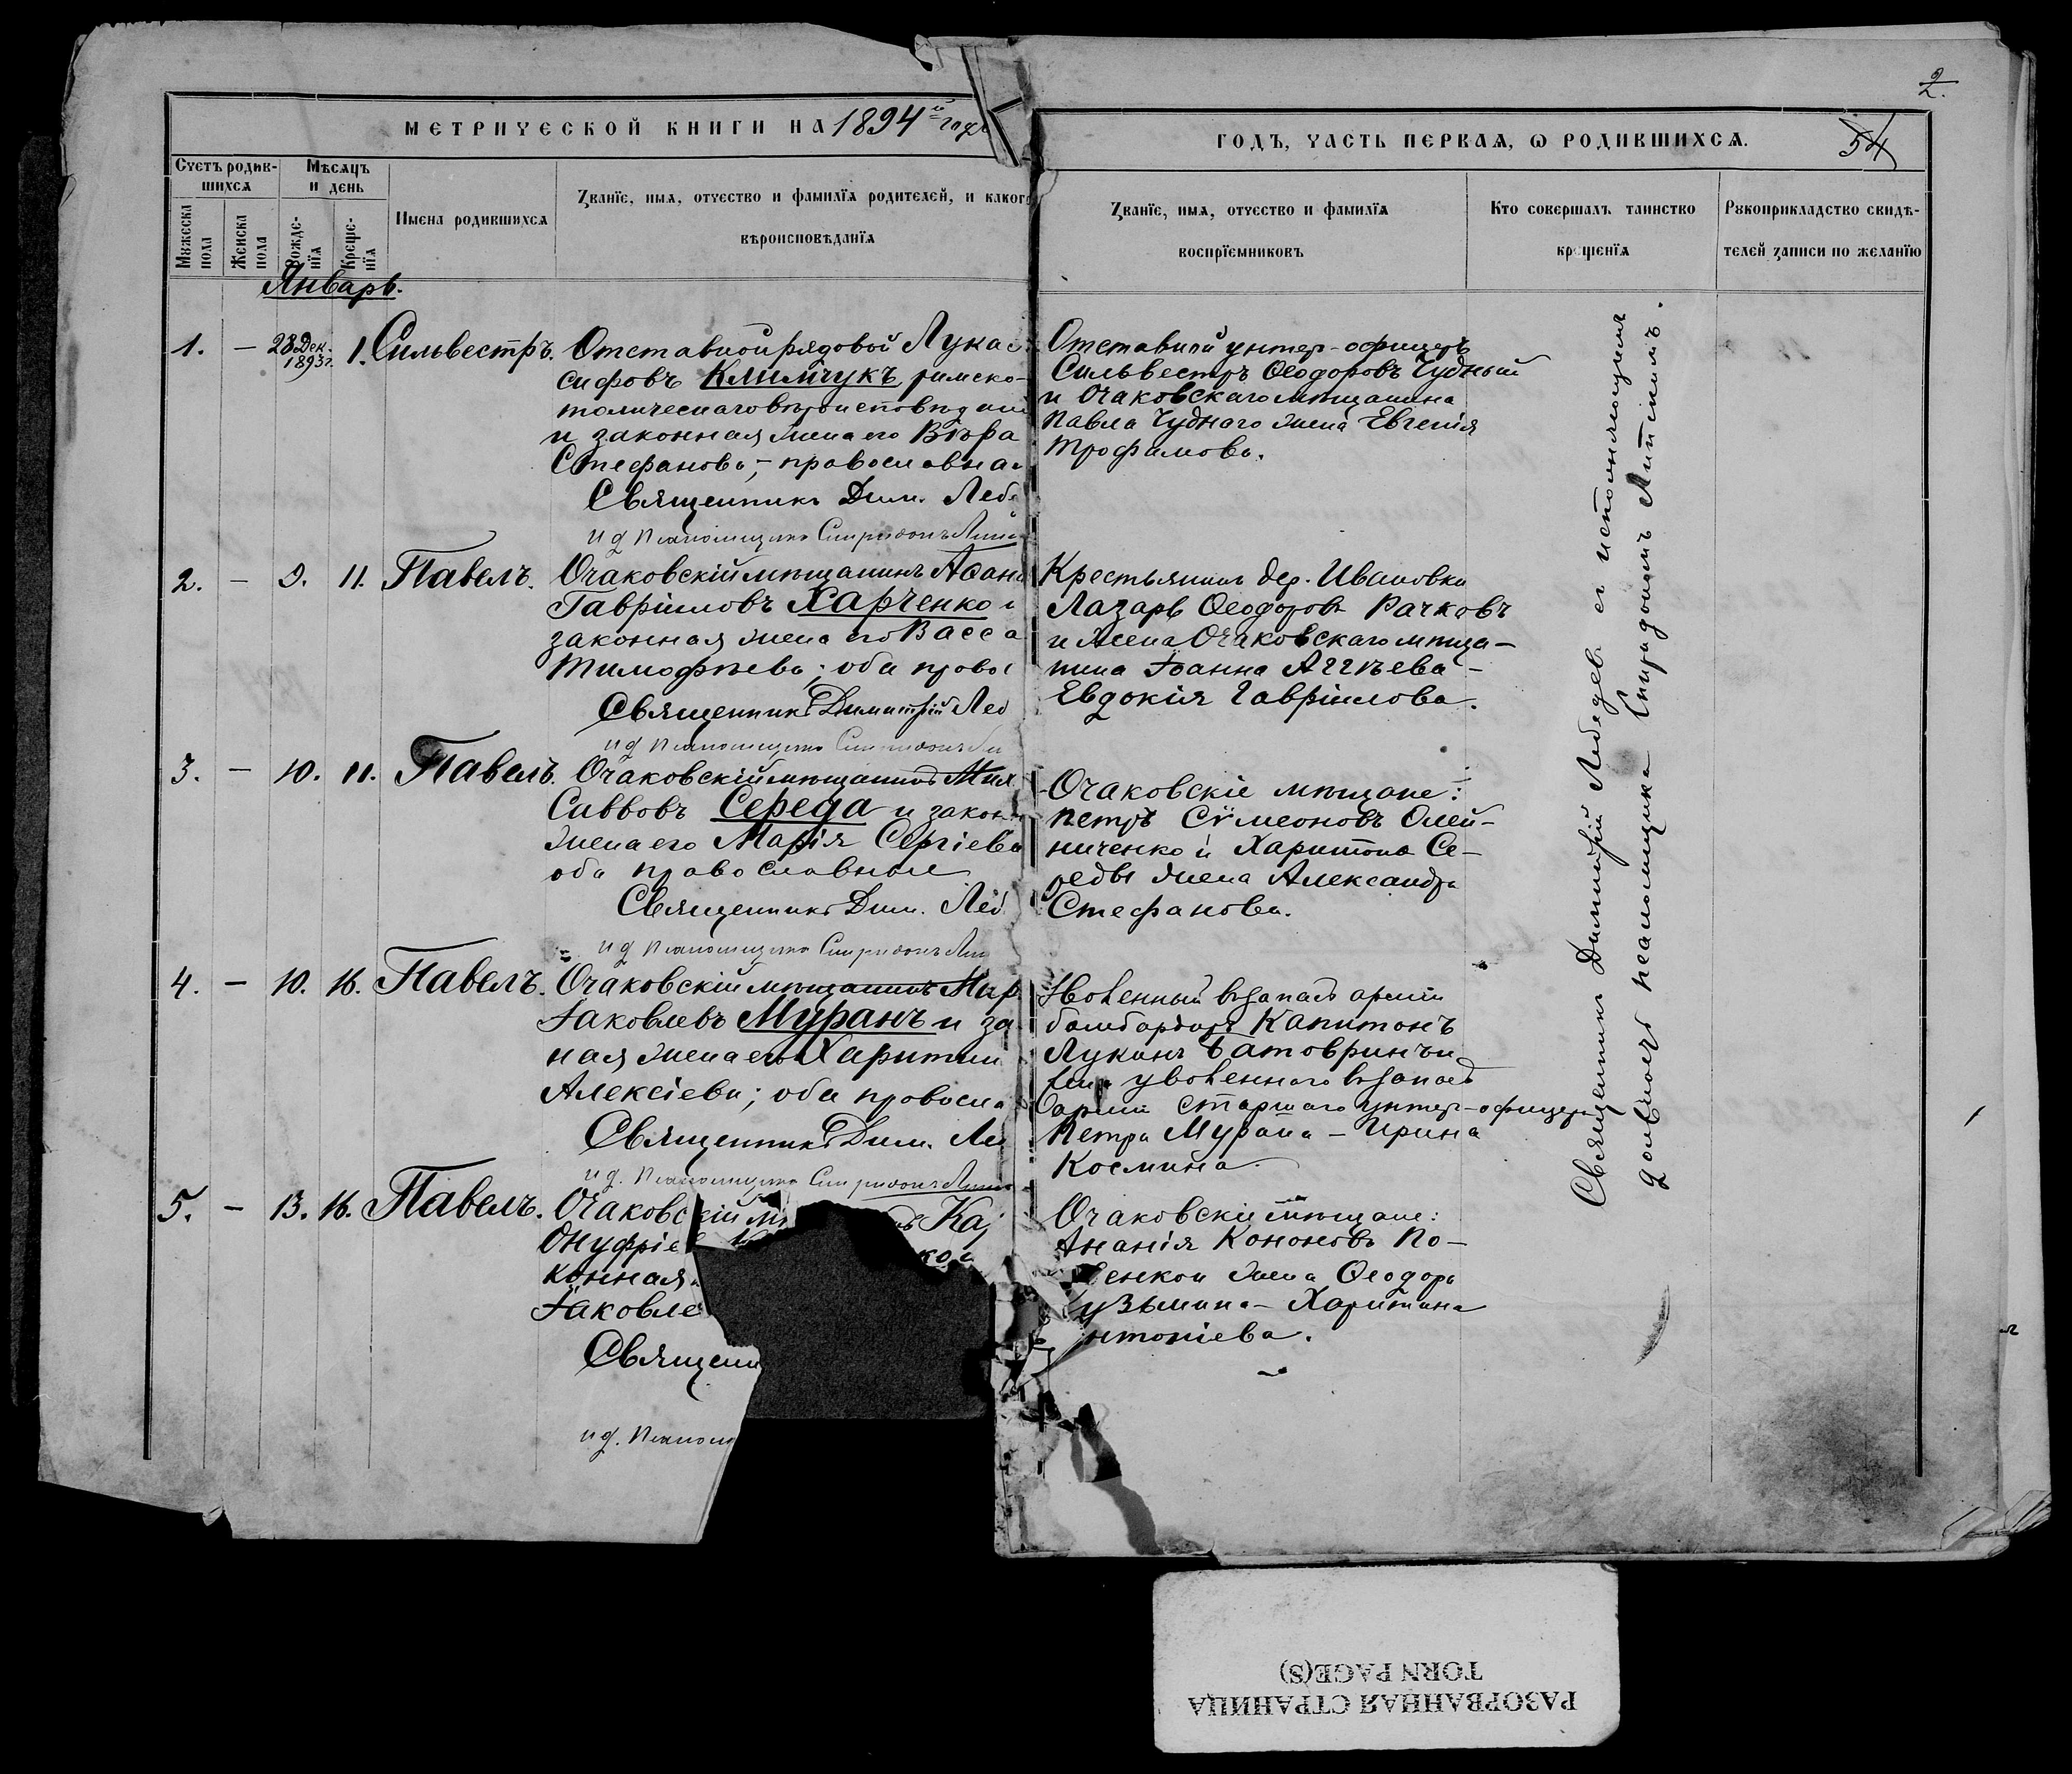 2/2.
МЕТРИЧЕСКОЙ КНИГИ НА 1894й годъ
ГОДЪ, ЧАСТЬ ПЕРВАѦ, Ѡ РОДИВШИХСѦ.
54
Счетъ родив-
шихсѧ
Мѣсѧцъ
и день
Мꙋжеска
пола
Женска
пола
Рожде-
нїѧ
Креще-
нїѧ
Имена родившихсѧ
Званїе, имѧ, отчество и фамилїѧ родителей, и какого
вѣроисповѣданїѧ
Званїе, имѧ, отчество и фамилїѧ
воспрїемниковъ
Кто совершалъ таинство
крещенїѧ
Рꙋкоприкладство свидѣ-
телей записи по желанїю
Январь.
1. — 28 Дек. 1893г. 1. Сильвестръ.
Отставной рядовой Лука
сифовъ Климчукъ, римско-
толическаго вѣроисповѣдан
и законная жена его Вѣра
Стефанова,- православна
Священникъ Дим. Леб
ид псаломщика Спиридонъ Лип
Отставной унтер-офицеръ
Сильвестръ Ѳеодоровъ Чудный
и Очаковскаго мѣщанина
Павла Чуднаго жена Евгенія
Трофимова.
2. — 9. 11. Павелъ.
Очаковскій мѣщанинъ Аѳан
Гавріиловъ Харченко и
законная жена его Васса
Тимофѣева; оба правос
Священникъ Димитрій Леб
ид псаломщика Спиридонъ Ли
Крестьянинъ дер. Ивановки
Лазарь Ѳеодоровъ Рачковъ
и жена Очаковскаго мѣща-
нина Іоанна Аггѣева -
Евдокія Гавріилова.
3. — 10. 11. Павелъ.
Очаковскій мѣщанинъ Мих
Саввовъ Середа и закон
жена его Марія Сергіева
оба православные
Священникъ Дим. Леб
ид псаломщика Спиридонъ Лип
Очаковскіе мѣщане:
Петръ Сѵмеоновъ Олей-
ниченко и Харитона Се-
реды жена Александра
Стефанова.
4. — 10. 16. Павелъ.
Очаковскій мѣщанинъ Мир
Іаковлевъ Муранъ и за
ная жена его Харитин
Алексіева; оба правосла
Священникъ Дим. Ле
ид. псаломщика Спиридонъ Лип
Уволенный въ запасъ арміи
бомбардиръ Капитонъ
Лукинъ Батовринъ и
жена уволеннаго въ запасъ
арміи старшаго унтер-офицера
Петра Мурана - Ирина
Космина.
5. — 13. 16. Павелъ.
Очаковскій м Ка
Онуфріе
конная
Іаковле
Священн
ид. псалом
Очаковскіе мѣщане:
Ананія Кононовъ По-
енко и жена Ѳеодора
узьмина - Харитина
нтоніева.
Священникъ Димитрій Лебедевъ съ исполняющимъ
должность псаломщика Спиридономъ Липскимъ.
РАЗОРВАННАЯ СТРАНИЦА
TORN PAGE(S)